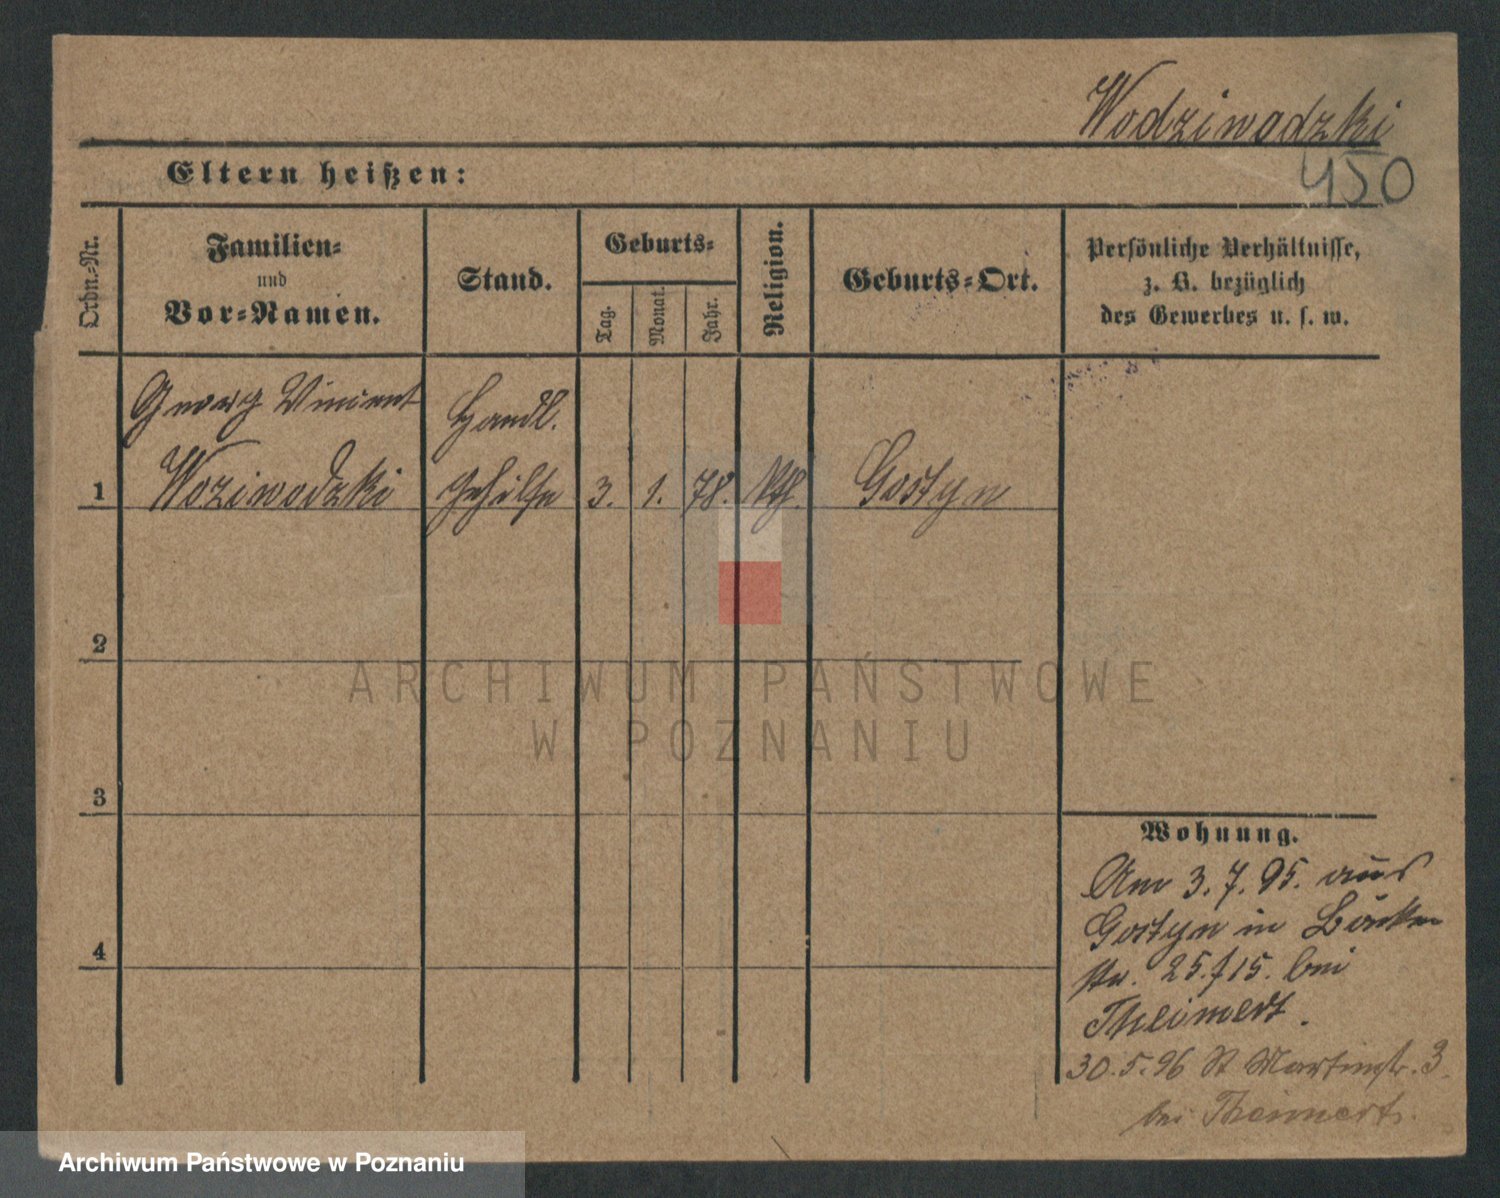 Wodziwodzki
450
Eltern heißen:
Ordn.-Nr.
Familien-
und
Vor-Namen.
Stand.
Geburts-
Tag.
Monat.
Jahr.
Religion.
Geburts-Ort.
Persönliche Verhältnisse,
z. B. bezüglich
des Gewerbes u. s. w.
Georg Vincent Handl.
1 Woziwodzki gehilfe 3. 1. 78. kth. Gostyn
2
3
4
Wohnung.
Am 3. 7. 95. aus
Gostyn in Bäcker
str. 25./15. bei
Theimert.
30.5.96 St Martinstr. 3.
bei Theimert.
ARCHIWUM PAŃSTWOWE
W POZNANIU
Archiwum Państwowe w Poznaniu